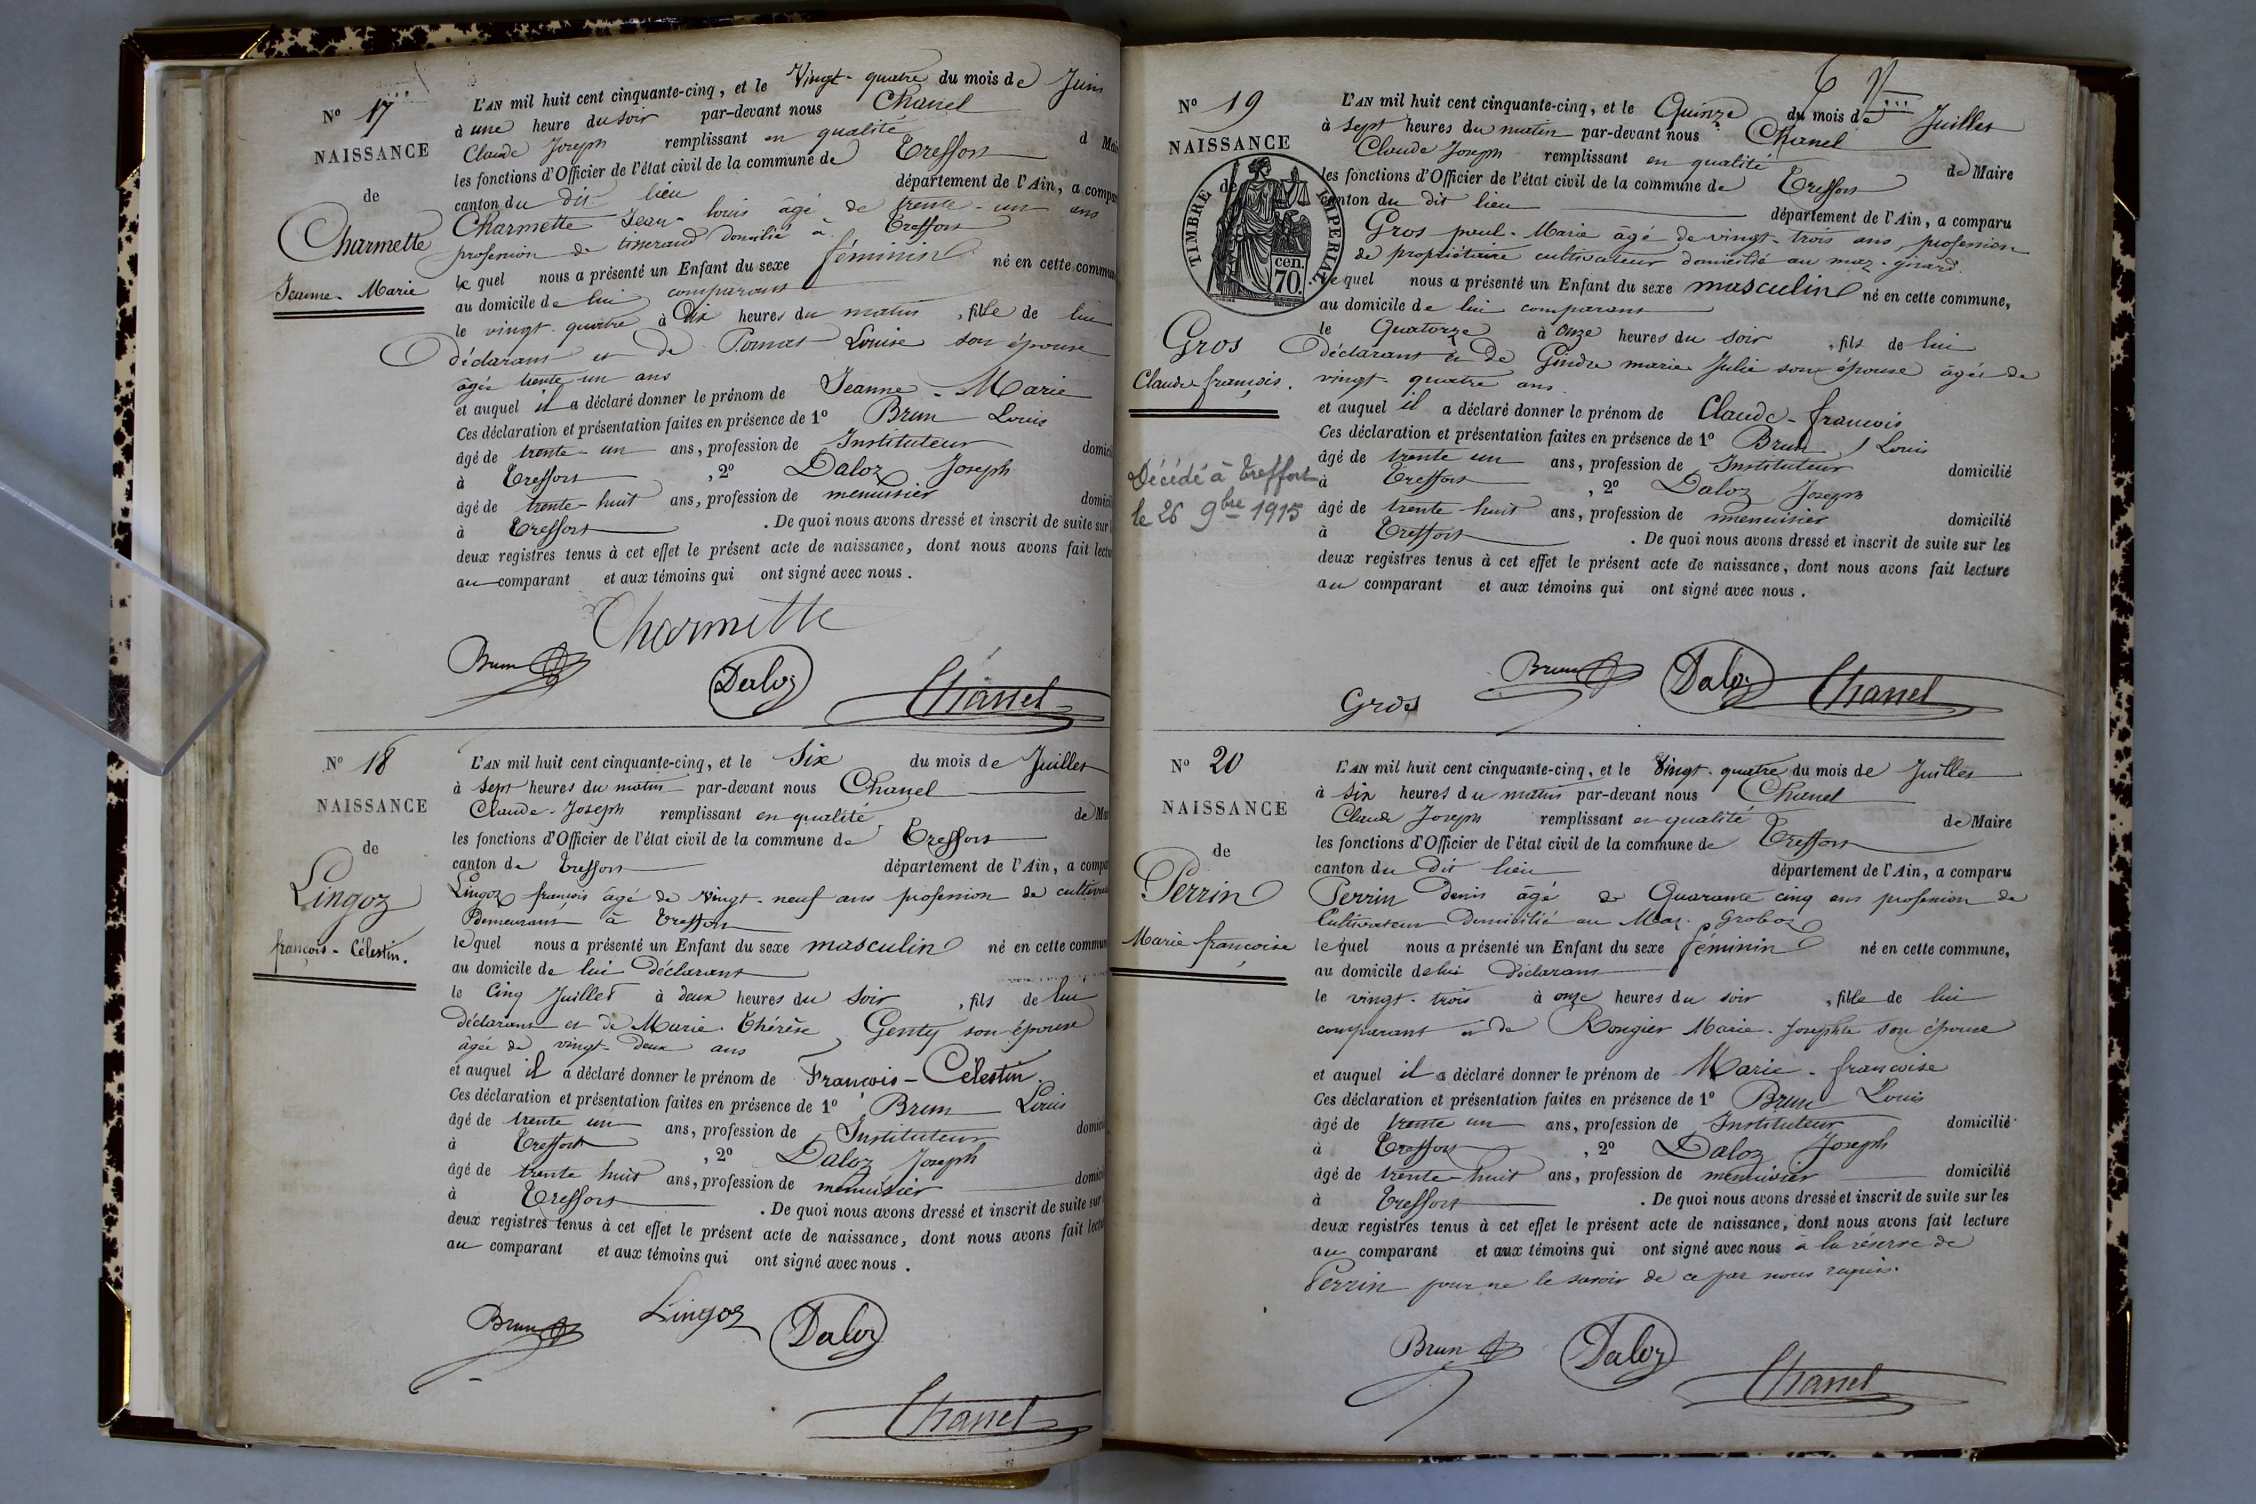 N° 17
NAISSANCE
de
Charmette
Jeanne-Marie
L'AN mil huit cent cinquante-cinq, et le Vingt-quatre du mois de Juin
à une heure du soir par-devant nous Chanel
Claude Joseph remplissant en qualité d Mai
les fonctions d'Officier de l'état civil de la commune de Treffort
canton du dit lieu département de l'Ain, a compa
Charmette Jean-louis âgé de trente-un ans
profession de tisserand domicilié à Treffort
lequel nous a présenté un Enfant du sexe féminin né en cette commun
au domicile de lui comparant
le vingt-quatre à Dix heures du matin, fille de lui
déclarant et de Louise son épouse
âgée trente un ans
et auquel il a déclaré donner le prénom de Jeanne-Marie
Ces déclaration et présentation faites en présence de 1° Brun Louis
âgé de trente-un ans, profession de Instituteur domici
à Treffort, 2° Daloz Joseph
âgé de trente-huit ans, profession de menuisier domici
à Treffort. De quoi nous avons dressé et inscrit de suite sur
deux registres tenus à cet effet le présent acte de naissance, dont nous avons fait lectu
au comparant et aux témoins qui ont signé avec nous.
Charmette
Brun Daloz Chanel
N° 18
NAISSANCE
de
Lingoz
françois-Célestin.
L'AN mil huit cent cinquante-cinq, et le Six du mois de Juillet
à sept heures du matin par-devant nous Chanel
Claude-Joseph remplissant en qualité de Mai
les fonctions d'Officier de l'état civil de la commune de Treffort
canton de Treffort département de l'Ain, a compa
Lingoz françois âgé de vingt-neuf ans profession de cultivat
Demeurant à Treffort
lequel nous a présenté un Enfant du sexe masculin né en cette commun
au domicile de lui Déclarant
le Cinq Juillet à deux heures du soir, fils de lui
Déclarant et de Marie-Thérèse Genty son épouse
âgée de vingt-deux ans
et auquel il a déclaré donner le prénom de François-Célestin.
Ces déclaration et présentation faites en présence de 1° Brun Louis
âgé de trente un ans, profession de Instituteur domici
à Treffort, 2° Daloz Joseph
âgé de trente huit ans, profession de menuisier domici
à Treffort. De quoi nous avons dressé et inscrit de suite sur
deux registres tenus à cet effet le présent acte de naissance, dont nous avons fait lectu
au comparant et aux témoins qui ont signé avec nous.
Brun Lingoz Daloz
Chanel
N° 19
NAISSANCE
de
TIMBRE IMPERIAL
70 cen.
Gros
Claude-françois.
Décédé à Treffort
le 26 9bre 1915
L'AN mil huit cent cinquante-cinq, et le Quinze du mois de Juillet
à sept heures du matin par-devant nous Chanel
Claude Joseph remplissant en qualité de Maire
les fonctions d'Officier de l'état civil de la commune de Treffort
canton du dit lieu département de l'Ain, a comparu
Gros paul-Marie âgé de vingt-trois ans, profession
de propriétaire cultivateur domicilié au maz-girard.
lequel nous a présenté un Enfant du sexe masculin né en cette commune,
au domicile de lui comparant
le Quatorze à onze heures du soir, fils de lui
déclarant et de Gindre marie Julie son épouse âgée de
vingt-quatre ans
et auquel il a déclaré donner le prénom de Claude-francois
Ces déclaration et présentation faites en présence de 1° Brun Louis
âgé de trente un ans, profession de Instituteur domicilié
à Treffort, 2° Daloz Joseph
âgé de trente huit ans, profession de menuisier domicilié
à Treffort. De quoi nous avons dressé et inscrit de suite sur les
deux registres tenus à cet effet le présent acte de naissance, dont nous avons fait lecture
au comparant et aux témoins qui ont signé avec nous.
Gros Brun Daloz Chanel
N° 20
NAISSANCE
de
Perrin
Marie françoise
L'AN mil huit cent cinquante-cinq, et le Vingt-quatre du mois de Juillet
à Six heures du matin par-devant nous Chanel
Claude Joseph remplissant en qualité de Maire
les fonctions d'Officier de l'état civil de la commune de Treffort
canton du Dit lieu département de l'Ain, a comparu
Perrin denis âgé de Quarante cinq ans profession de
Cultivateur Domicilié au Maz-Groboz
lequel nous a présenté un Enfant du sexe féminin né en cette commune,
au domicile de lui Déclarant
le vingt-trois à onze heures du soir, fille de lui
comparant et de Rongier Marie-Josephte son épouse
et auquel il a déclaré donner le prénom de Marie-francoise
Ces déclaration et présentation faites en présence de 1° Brun Louis
âgé de trente un ans, profession de Instituteur domicilié
à Treffort, 2° Daloz Joseph
âgé de trente-huit ans, profession de menuisier domicilié
à Treffort. De quoi nous avons dressé et inscrit de suite sur les
deux registres tenus à cet effet le présent acte de naissance, dont nous avons fait lecture
au comparant et aux témoins qui ont signé avec nous à la réserve de
Perrin pour ne le savoir de ce par nous requis.
Brun Daloz Chanel